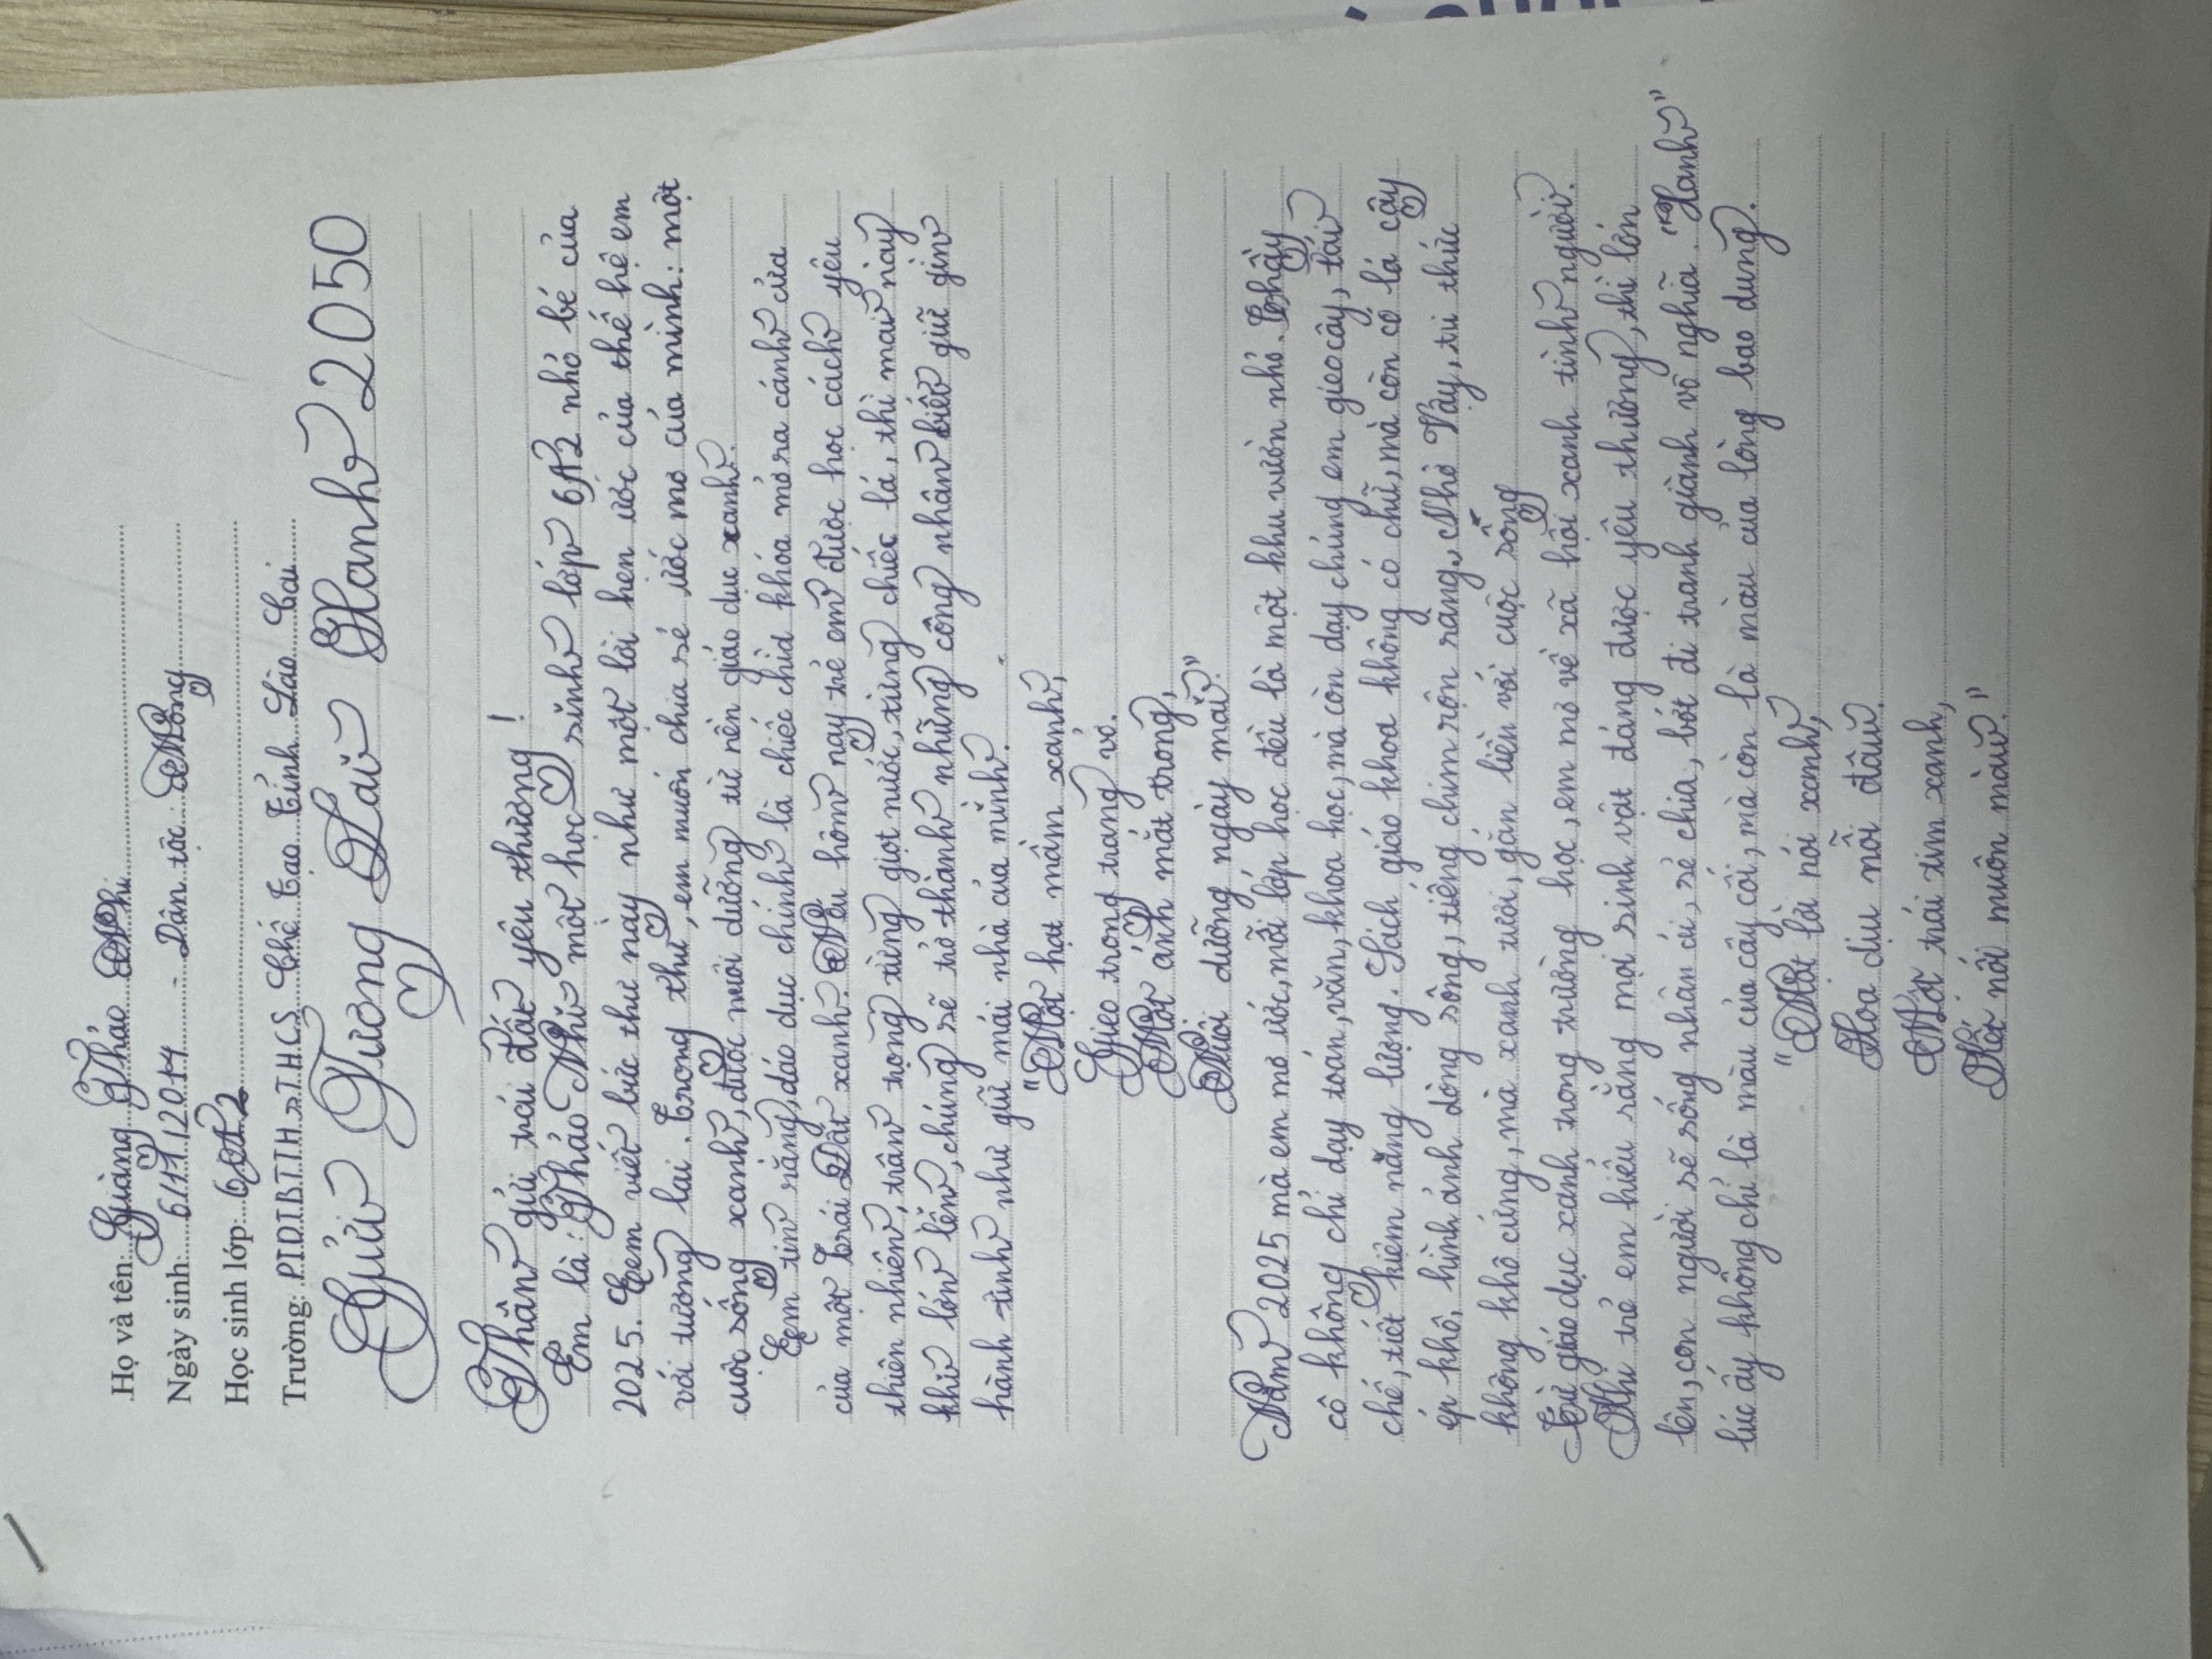 Họ và tên: Giàng Thảo Nhi
Ngày sinh: 6/11/2014 - Dân tộc: Mông
Học sinh lớp: 6A2
Trường: PTDTBTTH&THCS Chế Tạo Tỉnh Lào Cai
Gửi Tương Lai Xanh 2050
Thân gửi trái đất yêu thương!
Em là: Thảo Nhi một học sinh lớp 6A2 nhỏ bé của
2025. Em viết bức thư này như một lời hẹn ước của thế hệ em
với tương lai. Trong thư, em muốn chia sẻ ước mơ của mình: một
cuộc sống xanh, được nuôi dưỡng từ nền giáo dục xanh.
Em tin rằng, dáo dục chính là chiếc chìa khóa mở ra cánh cửa
của một Trái Đất xanh. Nếu hôm nay trẻ em được học cách yêu
thiên nhiên, trân trọng từng giọt nước, từng chiếc lá, thì mai này
khi lớn lên, chúng sẽ trở thành những công nhân biết giữ gìn
hành tinh như giữ mái nhà của mình.
"Một hạt mầm xanh,
Gieo trong trang vở.
Một ánh mắt trong,
Nuôi dưỡng ngày mai."
Năm 2025 mà em mơ ước, mỗi lớp học đều là một khu vườn nhỏ. Thầy
cô không chỉ dạy toán, văn, khoa học, mà còn dạy chúng em gieo cây, tái
chế, tiết kiệm năng lượng. Sách giáo khoa không có chữ, mà còn có lá cây
ép khô, hình ảnh dòng sông, tiếng chim rộn ràng. Nhờ Vậy, tri thức
không khô cứng, mà xanh tươi, gắn liền với cuộc sống
Từ giáo dục xanh trong trường học, em mơ về xã hội xanh tình người.
Khi trẻ em hiểu rằng mọi sinh vật đáng được yêu thương, thì lớn
lên, con người sẽ sống nhân ái, sẻ chia, bớt đi tranh giành vô nghĩa. "Xanh"
lúc ấy không chỉ là màu của cây cối, mà còn là màu của lòng bao dung.
"Một lời nói xanh,
Xoa dịu nỗi đau.
Một trái tim xanh,
Kết nối muôn màu."